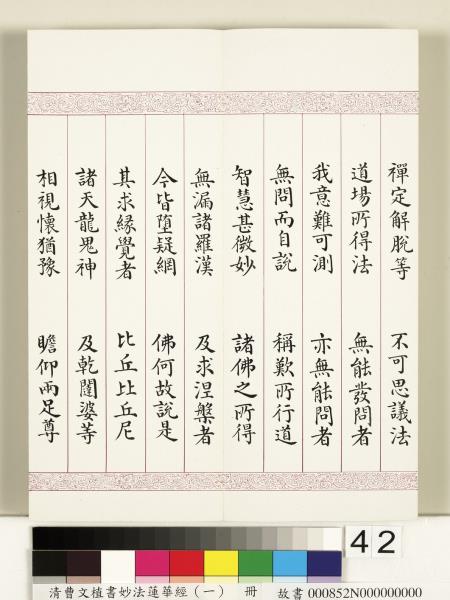 禪定解脫等　不可思議法
道場所得法　無能發問者
我意難可測　亦無能問者
無問而自說　稱歎所行道
智慧甚微妙　諸佛之所得
無漏諸羅漢　及求涅槃者
今皆墮疑網　佛何故說是
其求緣覺者　比丘比丘尼
諸天龍鬼神　及乾闥婆等
相視懷猶豫　瞻仰兩足尊
42
清曹文植書妙法蓮華經（一）　冊　故書 000852N000000000